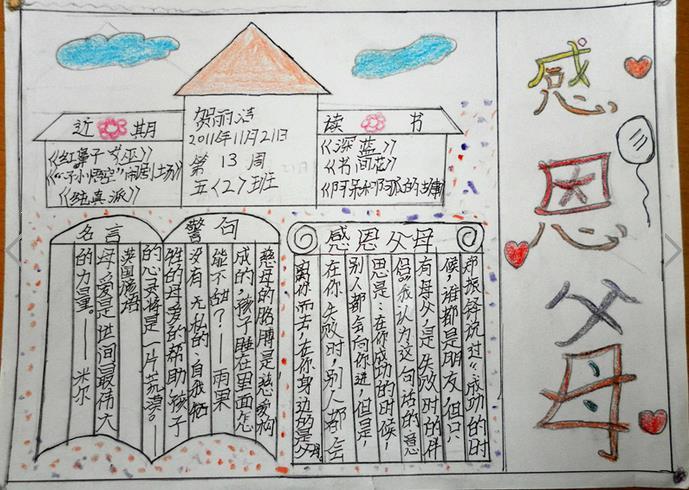 近期
《红鼻子巫》
《纯真派》
2011年11月21日
第 13 周
五〈2〉班
读书
《深蓝》
《书间花》
名言警句
慈母的胳膊是慈爱构
成的,孩子睡在里面怎
能不甜?——雨果
没有无私的·自我牺
牲的母爱的帮助孩子
的心灵将是一片荒漠。——
英国谚语
母爱是世间最伟大
的力量。——米尔
感恩父母
说过:“成功的时
候,谁都是朋友,但只
有母父,是失败时的伴
侣。我认为这句话的意
思是:在你成功的时候,
别人都会向你进,但是,
在你失败时,别人都会
离你而去,在你身边的是父母
感恩父母